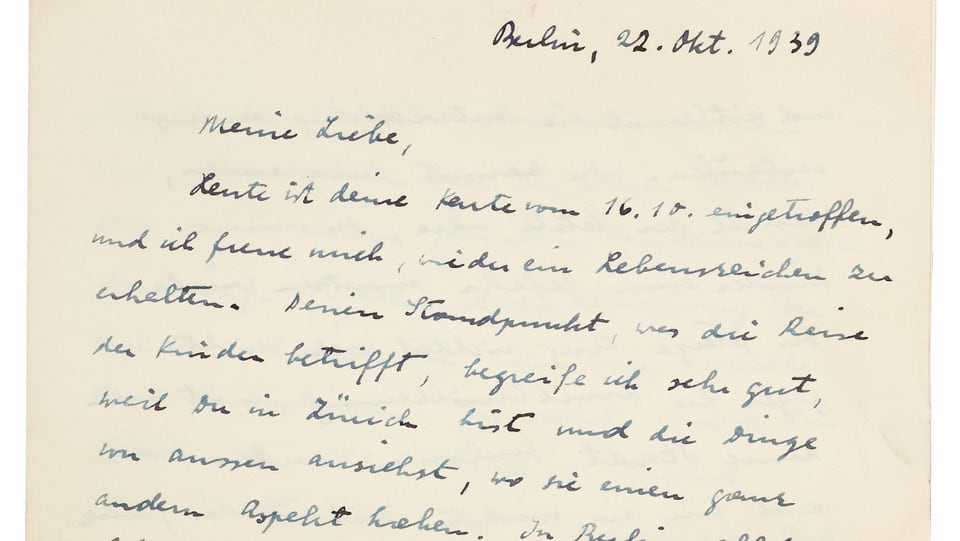 Berlin, 22. Okt. 1939
Meine Liebe,
Heute ist deine Karte vom 16.10. eingetroffen,
und ich freue mich, wieder ein Lebenszeichen zu
erhalten. Deinen Standpunkt, was die Reise
der Kinder betrifft, begreife ich sehr gut,
weil Du in Zürich bist und die Dinge
von aussen ansiehst, wo sie einen ganz
andern Aspekt haben. In Berlin